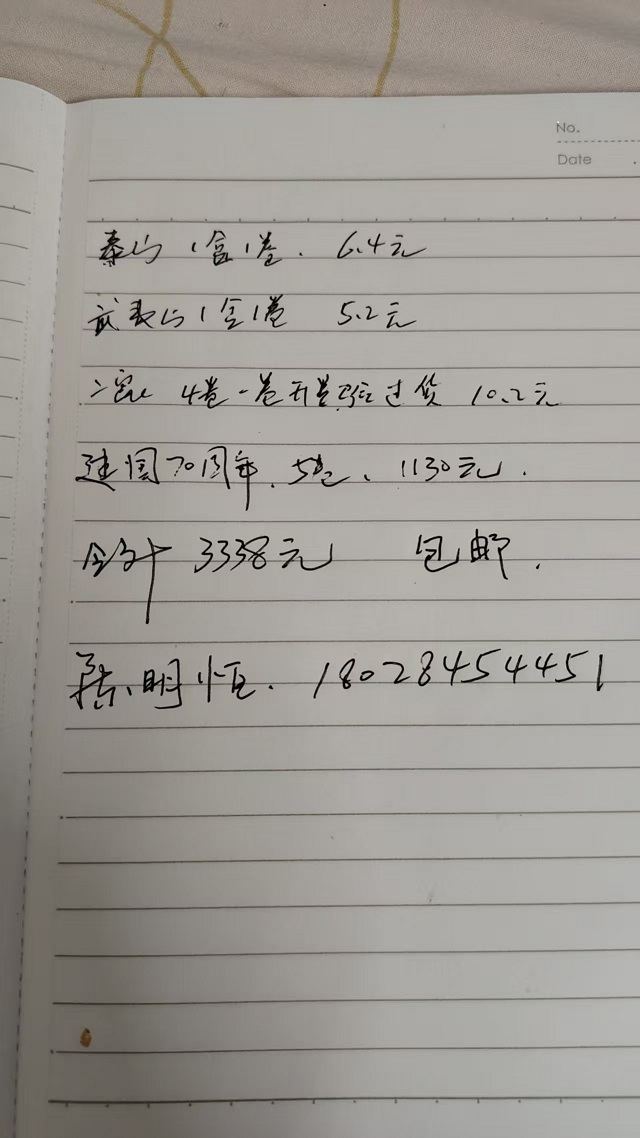 No.
Date
泰山 1盒1卷. 6.4元
武夷山1盒1卷 5.2元
二鼠 4卷一卷开卷验过货 10.2元
建国70周年. 5包、1130元.
合计 3338元 包邮.
明恒. 18028454451